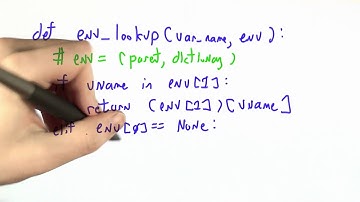 def env_lookup(var_name, env):
# env = (parent, dictionary)
if vname in env[1]:
return (env[1])[vname]
elif env[0] == None: